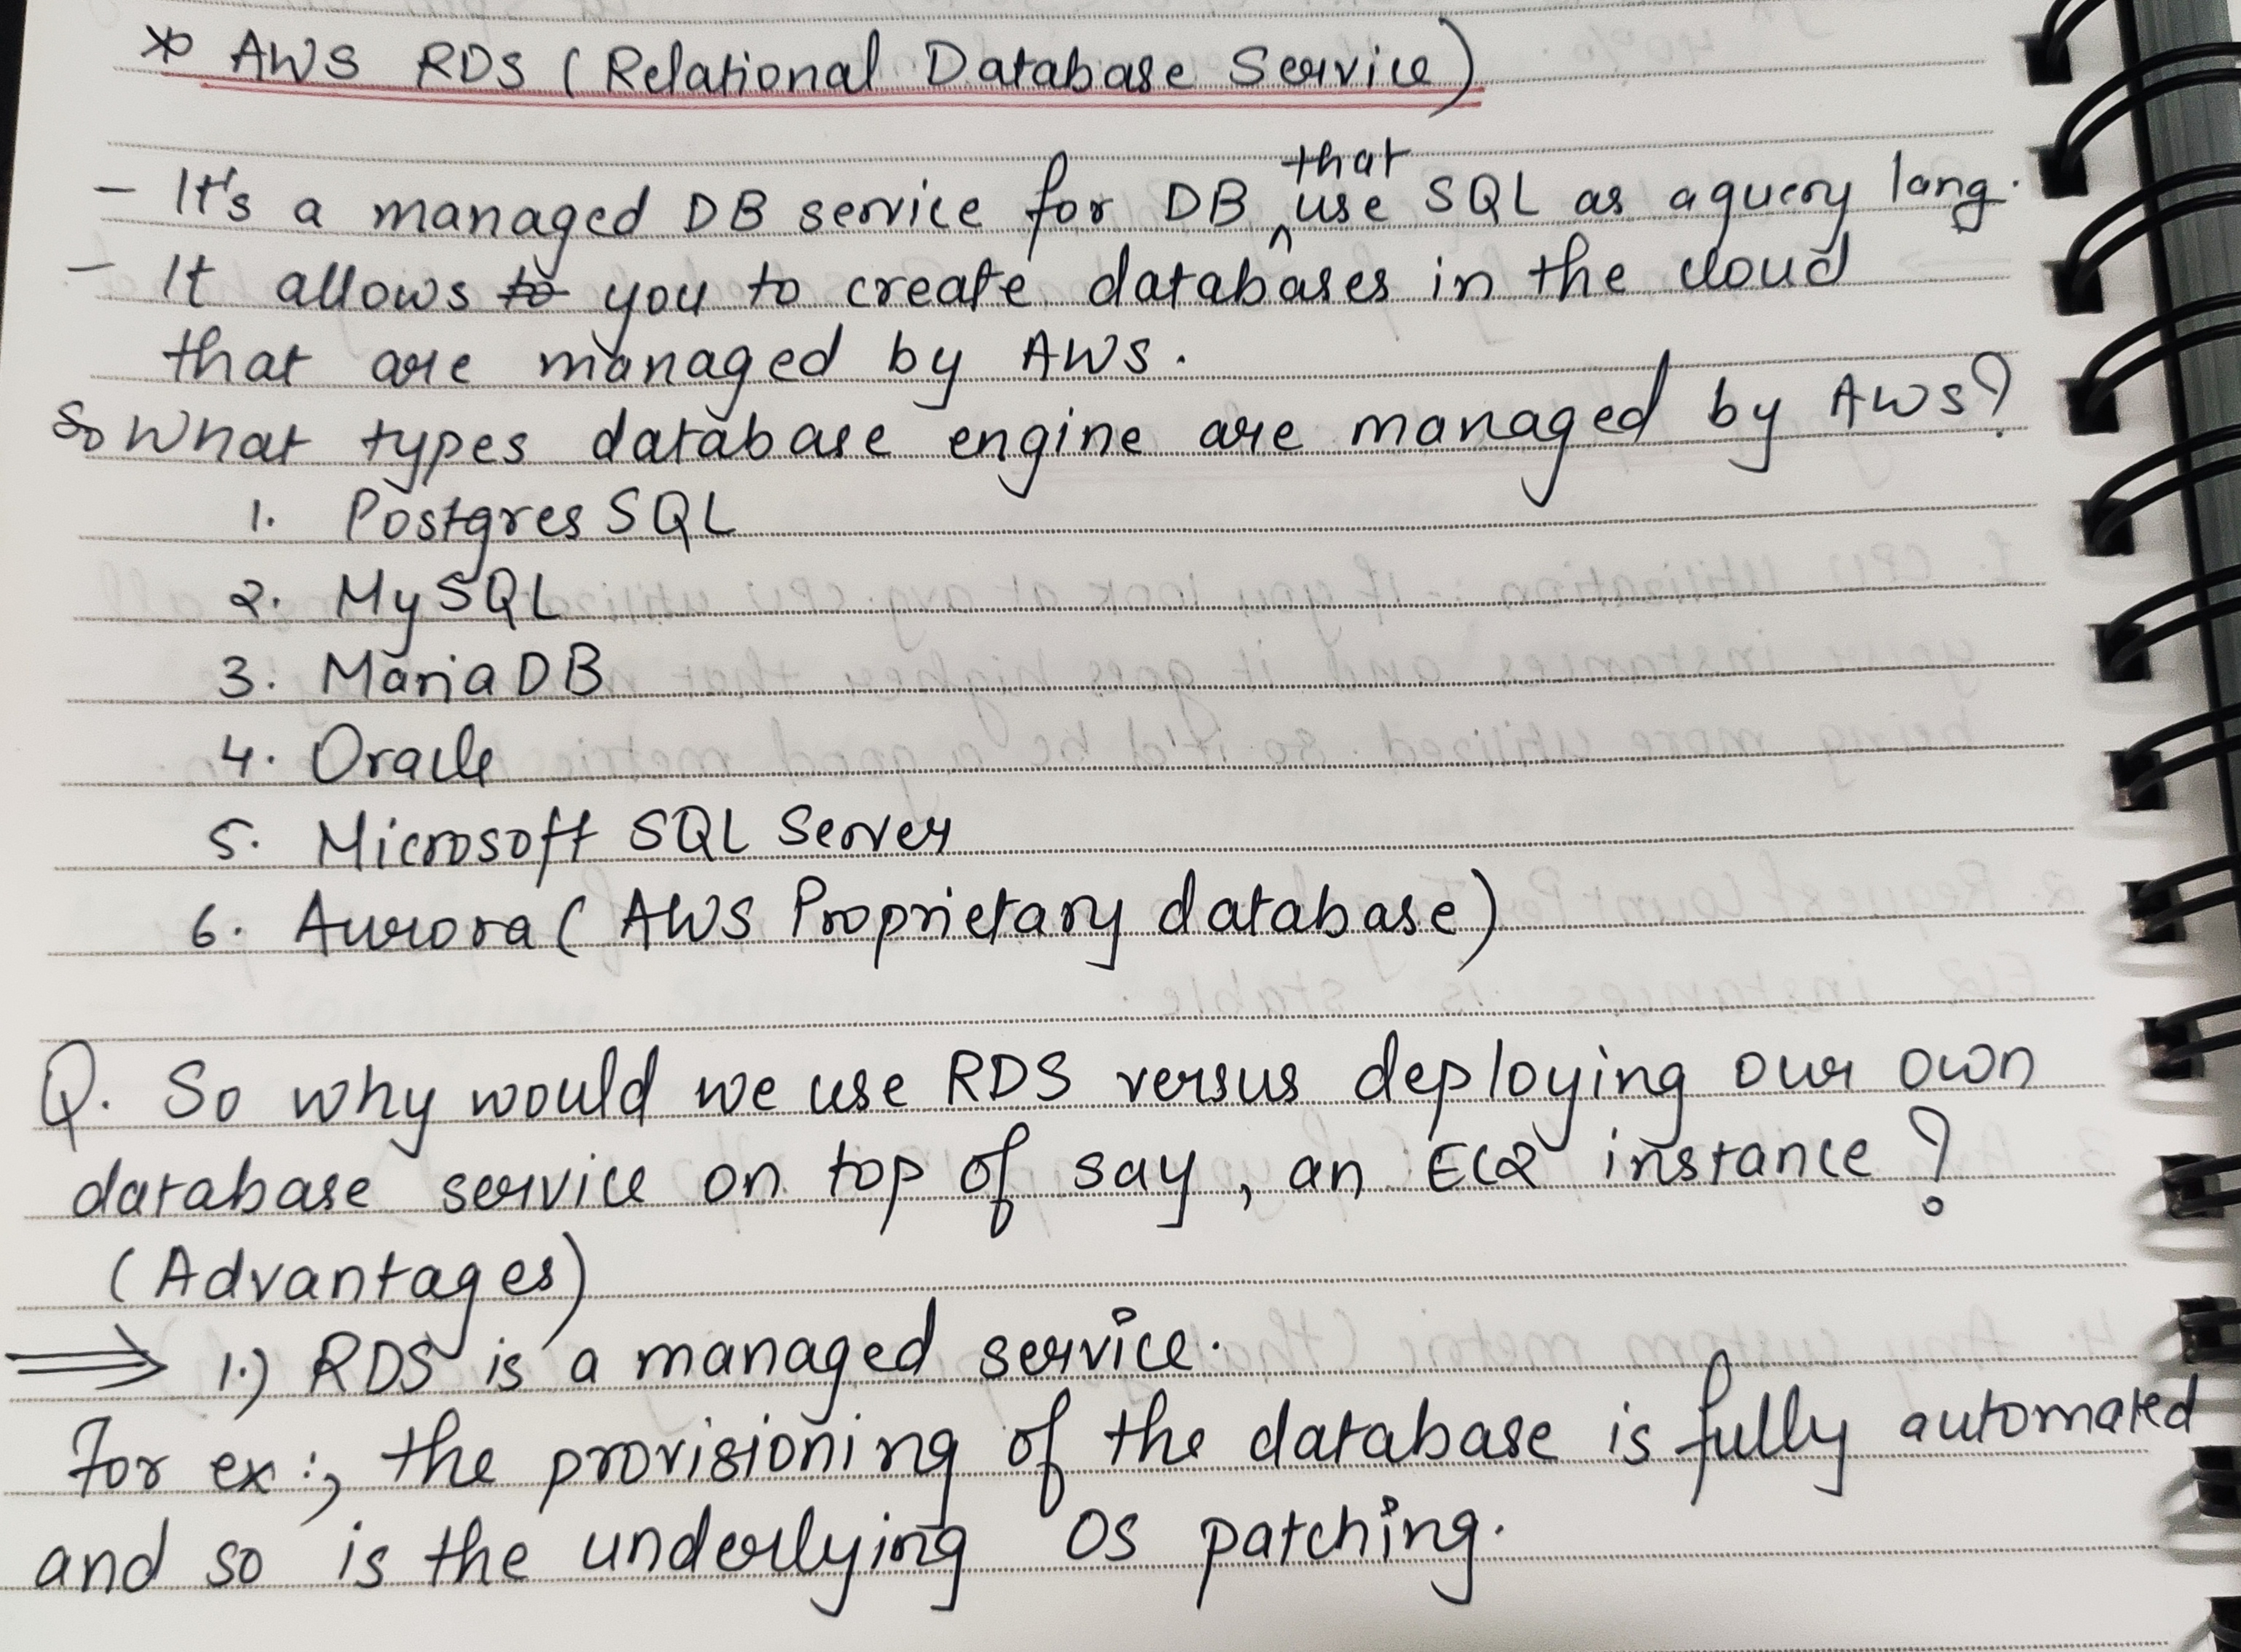 * AWS RDS (Relational Database Service)
- It's a managed DB service for DB that use SQL as a query lang.
- It allows to you to create databases in the cloud
that are managed by AWS.
So What types database engine are managed by AWS?
1. Postgres SQL
2. MySQL
3. MariaDB
4. Oracle
5. Microsoft SQL Server
6. Aurora (AWS Proprietary database)
Q. So why would we use RDS versus deploying our own
database service on top of say, an EC2 instance?
(Advantages)
⇒ 1.) RDS is a managed service.
For ex:, the provisioning of the database is fully automated
and so is the underlying OS patching.